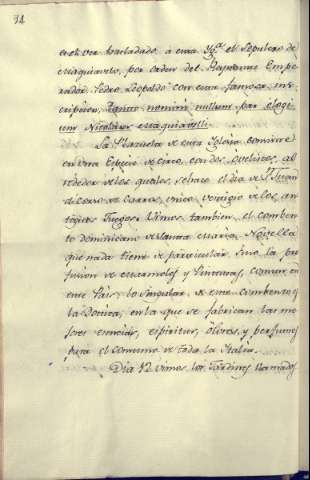 34
esta vez trasladado, à esta Ygª. el sepulcro de
Maquiavelo, por orden del Emperador
Pedro Leopoldo con esta famosa ins
cripcion. Tanto nomini nullum par elogi
um Nicolaus Maquiavelli.
La Plazuela de esta Yglesia convierte
en una Especie de circo, con dos obeliscos, al
rededor de los quales, se hace el dia de S.n Juan
el corso de carros, unico vestigio de los an
tiguos Juegos. Vimos tambien el comben
to dominicano de Santa Maria Novella
que nada tiene de particular, sino la pro
fusion de marmoles y Pinturas, comun en
este Pais; lo singular, de este combento es
la Botica, en la que se fabrican las me
jores esencias, espiritus, olores, y perfumes
para el consumo de toda la Italia.
Dia 12 vimos los Jardines llamados